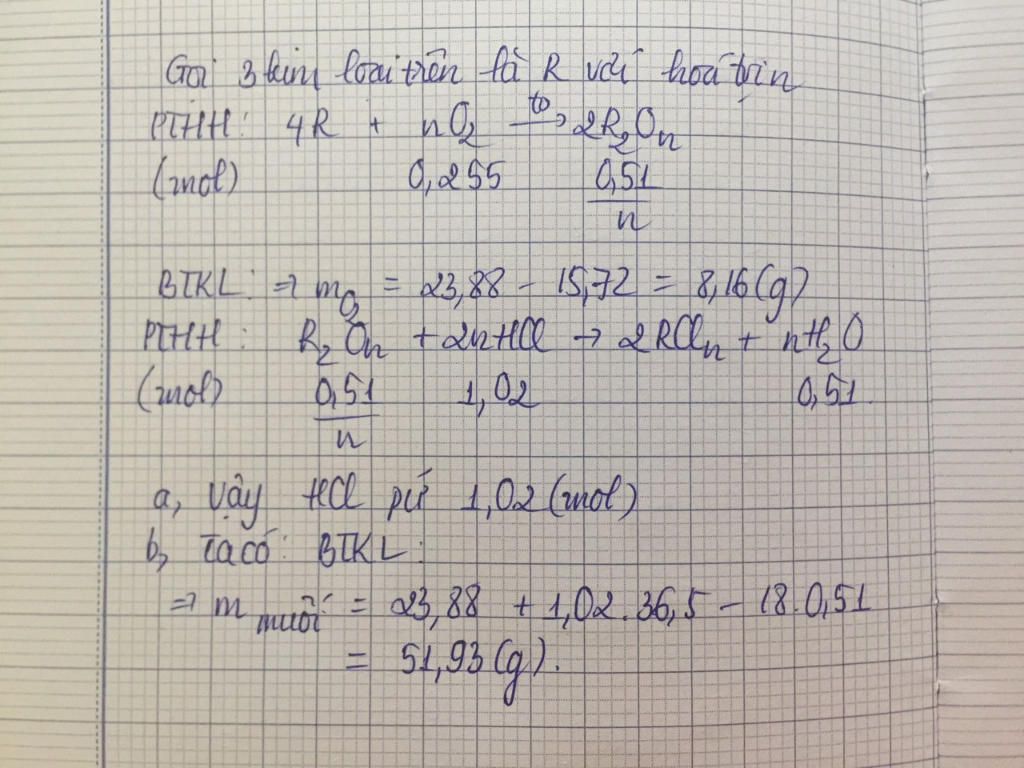 Gọi 3 kim loại trên là R với hoá trị n
PTHH: 4R + nO₂ –t°→ 2R₂Oₙ
(mol) 0,255 0,51/n
BTKL: ⇒ m O₂ = 23,88 - 15,72 = 8,16(g)
PTHH: R₂Oₙ + 2nHCl → 2RClₙ + nH₂O
(mol) 0,51/n 1,02 0,51
a, Vậy HCl pứ 1,02 (mol)
b, Ta có: BTKL:
⇒ m muối = 23,88 + 1,02.36,5 - 18.0,51
= 51,93(g).